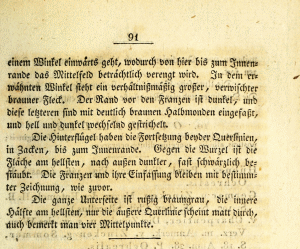 91
einem Winkel einwärts geht, wodurch von hier bis zum Innen-
rande das Mittelfeld beträchtlich verengt wird. In dem er-
wähnten Winkel steht ein verhältnißmäßig großer, verwischter
brauner Fleck. Der Rand vor den Franzen ist dunkel, und
diese letzteren sind mit deutlich braunen Halbmonden eingefaßt,
und hell und dunkel wechselnd gestrichelt.
Die Hinterflügel haben die Fortsetzung beyder Querlinien,
in Zacken, bis zum Innenrande. Gegen die Wurzel ist die
Fläche am hellsten, nach außen dunkler, fast schwärzlich be-
stäubt. Die Franzen und ihre Einfassung bleiben mit bestimm-
ter Zeichnung, wie zuvor.
Die ganze Unterseite ist rußig braungrau, die innere
Hälfte am hellsten, nur die äußere Querlinie scheint matt durch,
auch bemerkt man vier Mittelpunkte.